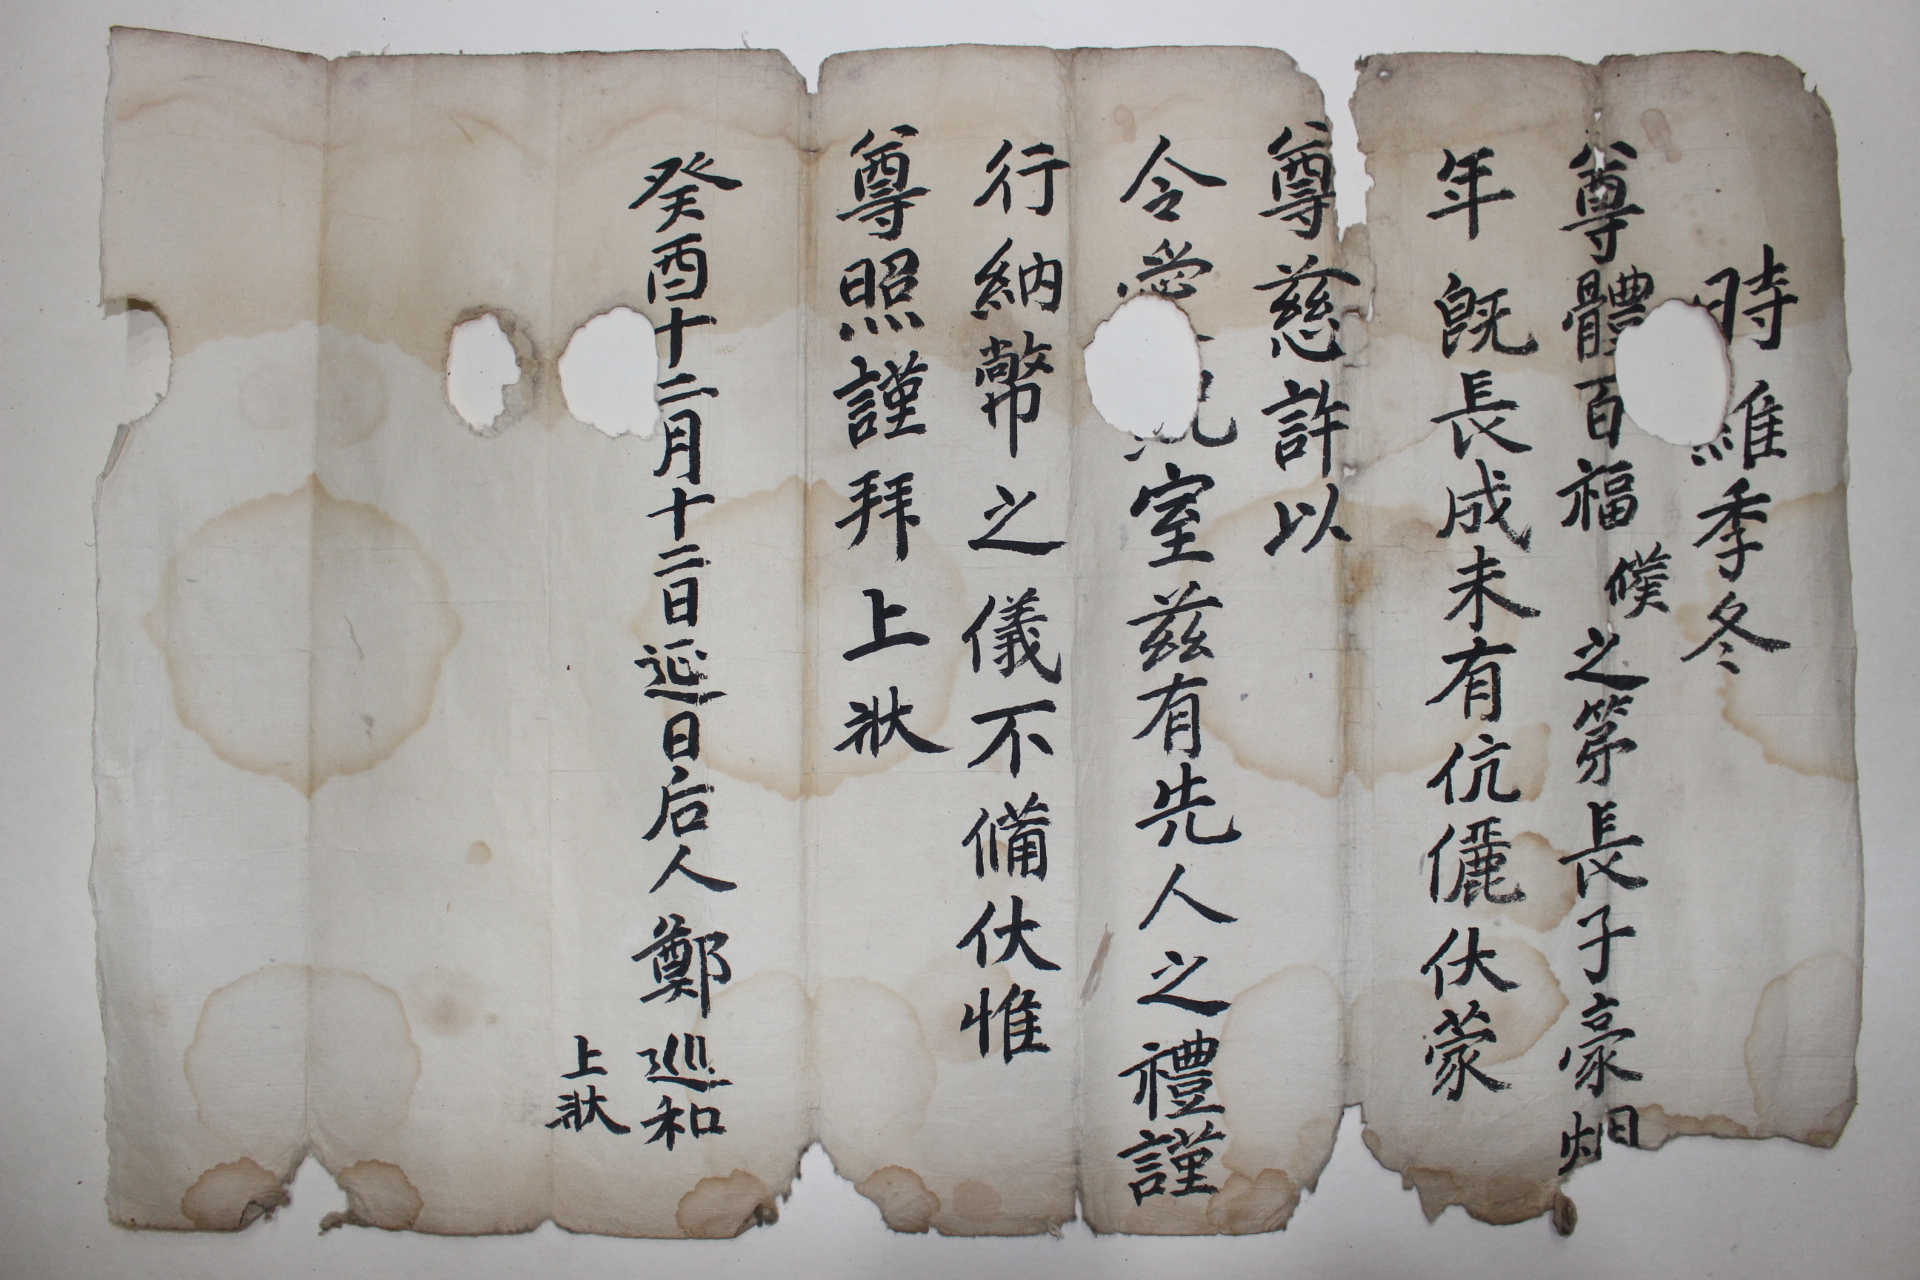 時維季冬
尊體百福僕之第長子豪烟
年旣長成未有伉儷伏蒙
尊慈許以
令愛室玆有先人之禮謹
行納幣之儀不備伏惟
尊照謹拜上狀
癸酉十二月十二日延日后人鄭巡和
上狀